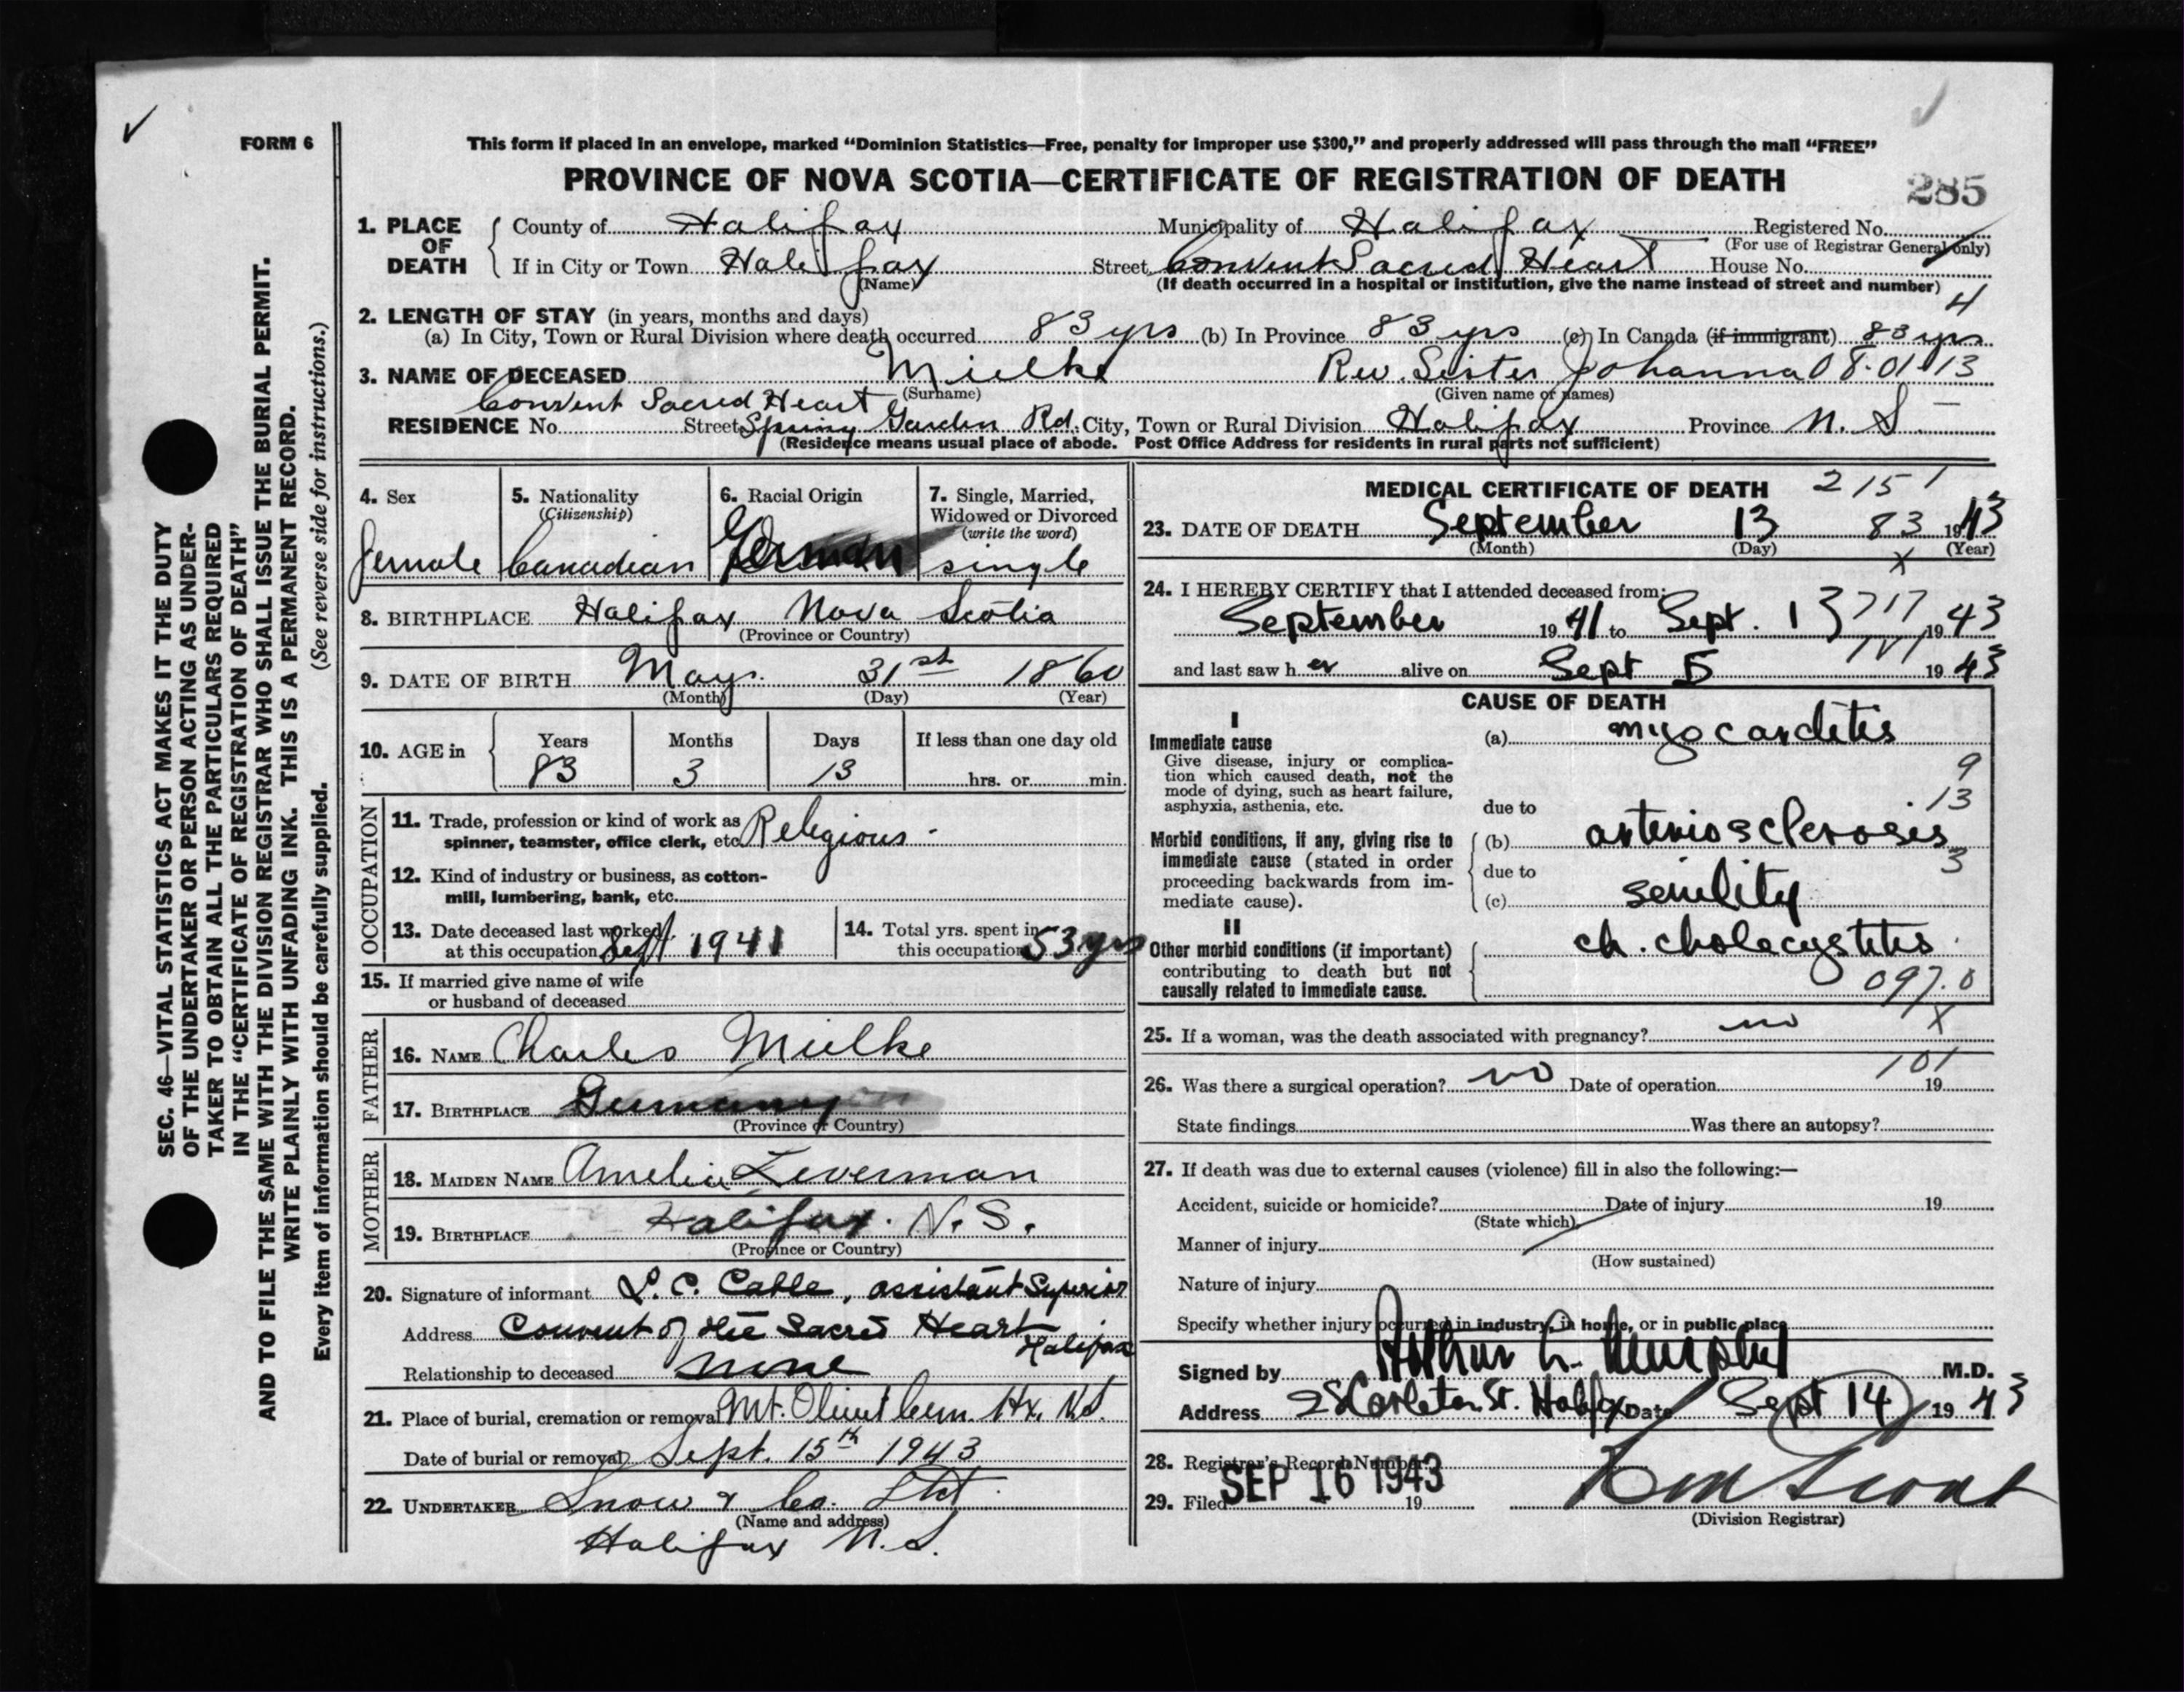 FORM 6
This form if placed in an envelope, marked “Dominion Statistics—Free, penalty for improper use $300,” and properly addressed will pass through the mail “FREE”
PROVINCE OF NOVA SCOTIA—CERTIFICATE OF REGISTRATION OF DEATH
285
1. PLACE OF DEATH
County of Halifax Municipality of Halifax Registered No.
(For use of Registrar General only)
If in City or Town Halifax Street Convent Sacred Heart House No.
(Name) (If death occurred in a hospital or institution, give the name instead of street and number)
4
2. LENGTH OF STAY (in years, months and days)
(a) In City, Town or Rural Division where death occurred 83 yrs (b) In Province 83 yrs (c) In Canada (if immigrant) 83 yrs
3. NAME OF DECEASED Mielke Rev. Sister Johanna 08-01-13
(Surname) (Given name or names)
Convent Sacred Heart
RESIDENCE No. Street Spring Garden Rd. City, Town or Rural Division Halifax Province N.S.
(Residence means usual place of abode. Post Office Address for residents in rural parts not sufficient)
4. Sex
female
5. Nationality
(Citizenship)
Canadian
6. Racial Origin
German
7. Single, Married,
Widowed or Divorced
(write the word)
single
8. BIRTHPLACE Halifax Nova Scotia
(Province or Country)
9. DATE OF BIRTH May 31st 1860
(Month) (Day) (Year)
10. AGE in
Years Months Days If less than one day old
83 3 13 hrs. or min.
OCCUPATION
11. Trade, profession or kind of work as
spinner, teamster, office clerk, etc. Religious
12. Kind of industry or business, as cotton-
mill, lumbering, bank, etc.
13. Date deceased last worked
at this occupation Sept 1941
14. Total yrs. spent in
this occupation 53 yrs
15. If married give name of wife
or husband of deceased
FATHER
16. NAME Charles Mielke
17. BIRTHPLACE Germany
(Province or Country)
MOTHER
18. MAIDEN NAME Amelia Leverman
19. BIRTHPLACE Halifax. N.S.
(Province or Country)
20. Signature of informant L. C. Cable, assistant Superior
Address Convent of the Sacred Heart
Halifax
Relationship to deceased none
21. Place of burial, cremation or removal Mt. Olivet Cem. Hx. N.S.
Date of burial or removal Sept. 15th 1943
22. UNDERTAKER Snow & Co. Ltd
(Name and address)
Halifax N.S.
MEDICAL CERTIFICATE OF DEATH 2151
23. DATE OF DEATH September 13 83 1943
(Month) (Day) (Year)
X
24. I HEREBY CERTIFY that I attended deceased from:
September 1941 to Sept. 13 1943
and last saw her alive on Sept 5 1943
CAUSE OF DEATH
I
Immediate cause
Give disease, injury or complica-
tion which caused death, not the
mode of dying, such as heart failure,
asphyxia, asthenia, etc.
(a) myocarditis
9
13
due to
Morbid conditions, if any, giving rise to
immediate cause (stated in order
proceeding backwards from im-
mediate cause).
(b) arteriosclerosis
3
due to
(c) senility
II
Other morbid conditions (if important)
contributing to death but not
causally related to immediate cause.
ch. cholecystitis
097.0
25. If a woman, was the death associated with pregnancy? no X
101
26. Was there a surgical operation? no Date of operation 19
State findings Was there an autopsy?
27. If death was due to external causes (violence) fill in also the following:—
Accident, suicide or homicide? Date of injury 19
(State which)
Manner of injury
(How sustained)
Nature of injury
Specify whether injury occurred in industry, in home, or in public place
Signed by Arthur L. Murphy M.D.
Address 28 Carleton St. Halifax Date Sept 14 1943
28. Registrar's Record Number
29. Filed SEP 16 1943 19
(Division Registrar)
SEC. 46—VITAL STATISTICS ACT MAKES IT THE DUTY
OF THE UNDERTAKER OR PERSON ACTING AS UNDER-
TAKER TO OBTAIN ALL THE PARTICULARS REQUIRED
IN THE “CERTIFICATE OF REGISTRATION OF DEATH”
AND TO FILE THE SAME WITH THE DIVISION REGISTRAR WHO SHALL ISSUE THE BURIAL PERMIT.
WRITE PLAINLY WITH UNFADING INK. THIS IS A PERMANENT RECORD.
Every item of information should be carefully supplied. (See reverse side for instructions.)